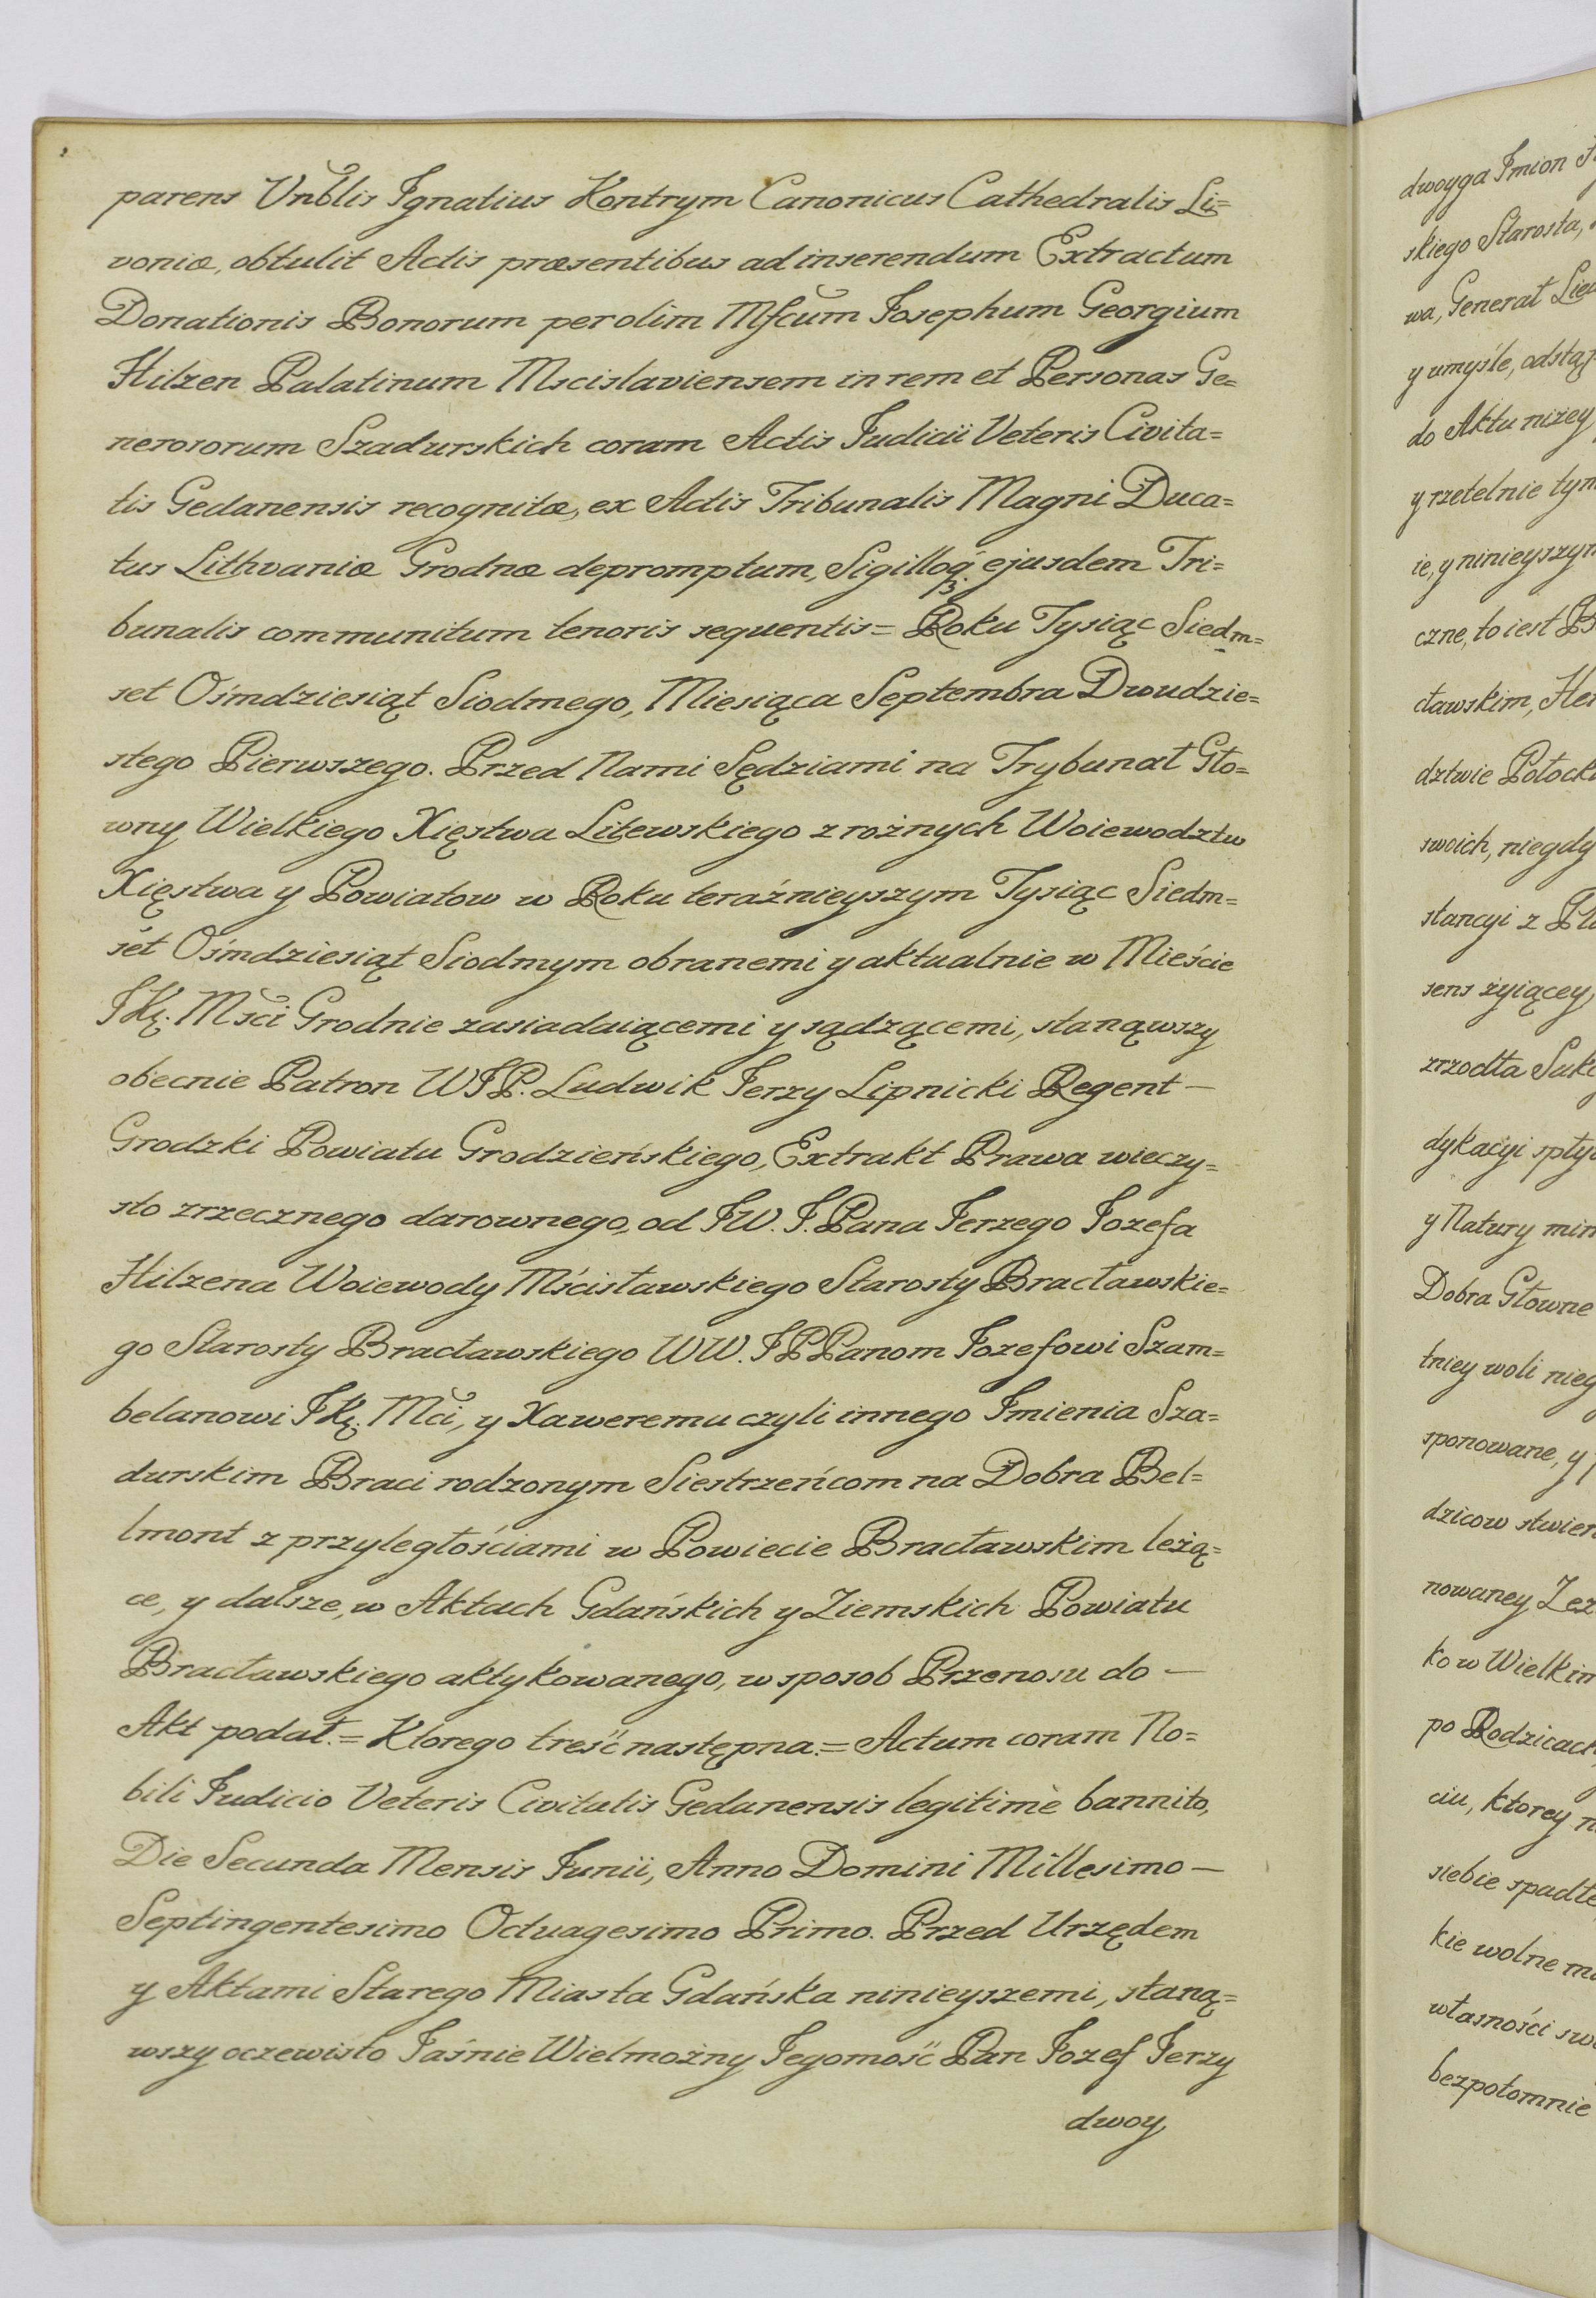 parens Vnblis Ignatius Kontrym Canonicus Cathedralis Li=
voniæ, obtulit Actis præsentibus ad inserendum Extractum
Donationis Bonorum per olim Mfcum Josephum Georgium
Hilzen Palatinum Mscislaviensem in rem et Personas Ge=
nerosorum Szadurskich coram Actis Judicii Veteris Civita=
tis Gedanensis recognitæ, ex Actis Tribunalis Magni Duca=
tus Lithvaniæ Grodnæ depromptum, Sigilloq3 ejusdem Tri=
bunalis communitum tenoris sequentis = Roku Tysiąc Siedm=
set Ośmdziesiąt Siodmego, Miesiąca Septembra Dwudzie=
stego Pierwszego. Przed Nami Sędziami na Trybunał Gło=
wny Wielkiego Xięstwa Litewskiego z rożnych Woiewodztw
Xięstwa y Powiatow w Roku teraźnieyszym Tysiąc Siedm=
set Ośmdziesiąt Siodmym obranemi y aktualnie w Mieście
JKę. Mści Grodnie zasiadaiącemi y sądzącemi, stanąwszy
obecnie Patron WJP. Ludwik Jerzy Lipnicki Regent —
Grodzki Powiatu Grodzieńskiego, Extrakt Prawa wieczy=
sto zrzecznego darownego, od JW. J. Pana Jerzego Jozefa
Hilzena Woiewody Mścisławskiego Starosty Bracławskie=
go Starosty Bracławskiego WW. JPPanom Jozefowi Szam=
belanowi JKę. Mci, y Xaweremu czyli innego Jmienia Sza=
durskim Braci rodzonym Siestrzeńcom na Dobra Bel=
lmont z przyległościami w Powiecie Bracławskim leżą=
ce, y dalsze, w Aktach Gdańskich y Ziemskich Powiatu
Bracławskiego aktykowanego, w sposob Przenosu do —
Akt podał. = Ktorego treść następna. = Actum coram No=
bili Judicio Veteris Civitatis Gedanensis legitimè bannito,
Die Secunda Mensis Junii, Anno Domini Millesimo —
Septingentesimo Octuagesimo Primo. Przed Urzędem
y Aktami Starego Miasta Gdańska ninieyszemi, staną=
wszy oczewisto Jaśnie Wielmożny Jegomość Pan Jozef Jerzy
dwoy
dwoyga Jmion
skiego Starosta,
wa, Generał
y umyśle,
do Aktu niżey
y rzetelnie
ie, y
czne, to iest
cławskim,
dztwie
swoich, niegdy
stancyi z
sens żyiącey
zrzodła
dykacyi
y Natury
Dobra Głowne
tniey woli
sponowane, y
dzicow
nowaney
kow
po
ciu, ktorey
siebie
kie wolne
własności
bezpotomnie